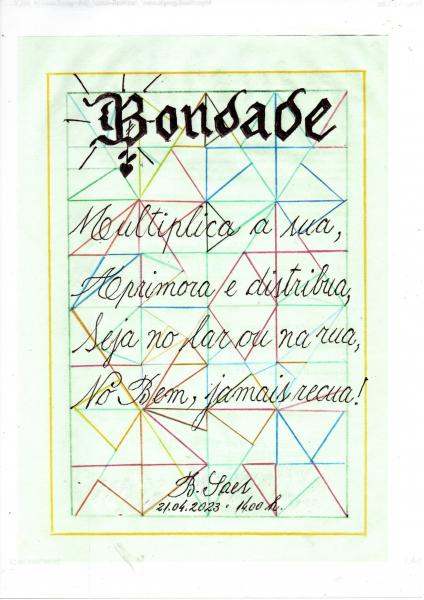 Bondade
Multiplica a sua,
Aprimora e distribua,
Seja no lar ou na rua,
No Bem, jamais recua!
B. Saes
21.04.2023 - 14:00 h.